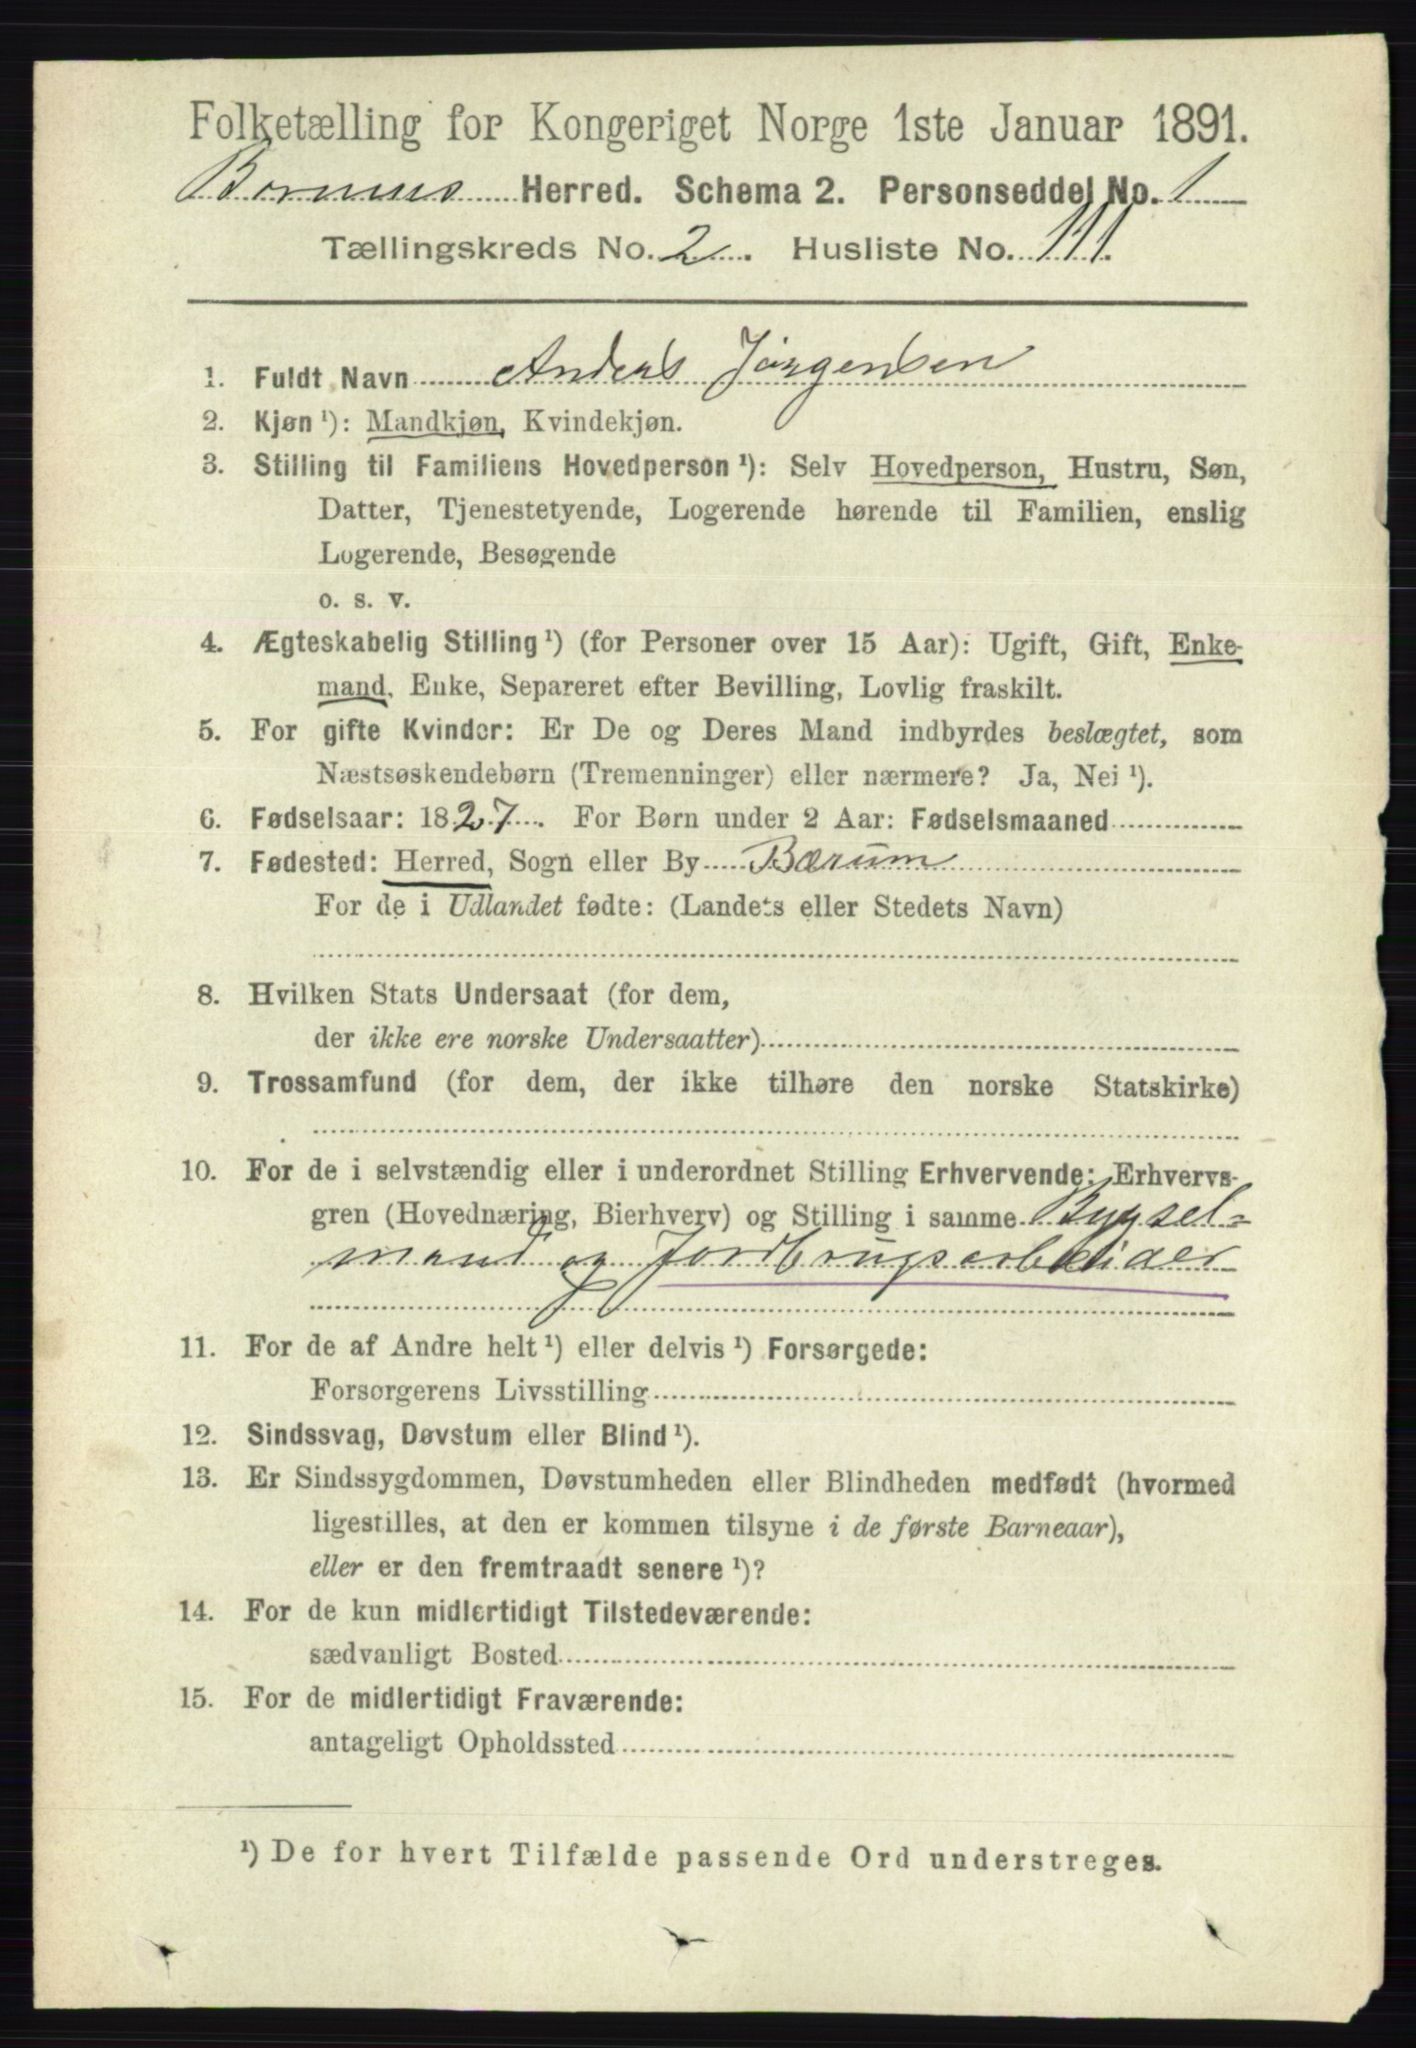 Folketælling for Kongeriget Norge 1ste Januar 1891.
Bærums Herred. Schema 2. Personseddel No. 1
Tællingskreds No. 2. Husliste No. 111.
1. Fuldt Navn Anders Jørgensen
2. Kjøn ¹): Mandkjøn, Kvindekjøn.
3. Stilling til Familiens Hovedperson ¹): Selv Hovedperson, Hustru, Søn,
Datter, Tjenestetyende, Logerende hørende til Familien, enslig
Logerende, Besøgende
o. s. v.
4. Ægteskabelig Stilling ¹) (for Personer over 15 Aar): Ugift, Gift, Enke-
mand, Enke, Separeret efter Bevilling, Lovlig fraskilt.
5. For gifte Kvinder: Er De og Deres Mand indbyrdes beslægtet, som
Næstsøskendebørn (Tremenninger) eller nærmere? Ja, Nei ¹).
6. Fødselsaar: 1827. For Børn under 2 Aar: Fødselsmaaned
7. Fødested: Herred, Sogn eller By Bærum
For de i Udlandet fødte: (Landets eller Stedets Navn)
8. Hvilken Stats Undersaat (for dem,
der ikke ere norske Undersaatter)
9. Trossamfund (for dem, der ikke tilhøre den norske Statskirke)
10. For de i selvstændig eller i underordnet Stilling Erhvervende: Erhvervs-
gren (Hovednæring, Bierhverv) og Stilling i samme Bygsel=
mand og Jordbrugsarbeider
11. For de af Andre helt ¹) eller delvis ¹) Forsørgede:
Forsørgerens Livsstilling
12. Sindssvag, Døvstum eller Blind ¹).
13. Er Sindssygdommen, Døvstumheden eller Blindheden medfødt (hvormed
ligestilles, at den er kommen tilsyne i de første Barneaar),
eller er den fremtraadt senere ¹)?
14. For de kun midlertidigt Tilstedeværende:
sædvanligt Bosted
15. For de midlertidigt Fraværende:
antageligt Opholdssted
¹) De for hvert Tilfælde passende Ord understreges.